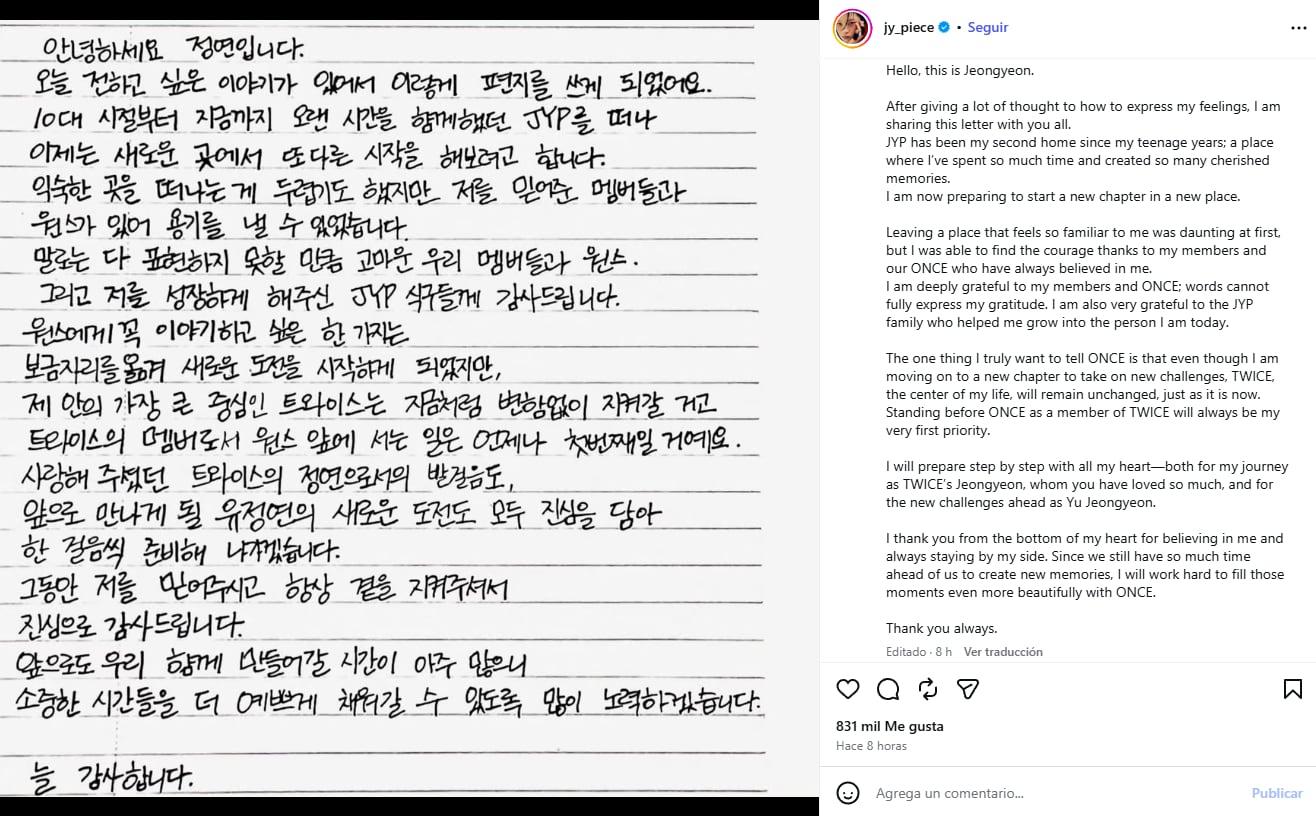 안녕하세요 정연입니다.
오늘 전하고 싶은 이야기가 있어서 이렇게 편지를 쓰게 되었어요.
10대 시절부터 지금까지 오랜 시간을 함께했던 JYP를 떠나
이제는 새로운 곳에서 또 다른 시작을 해보려고 합니다.
익숙한 곳을 떠나는 게 두렵기도 했지만 저를 믿어준 멤버들과
원스가 있어 용기를 낼 수 있었습니다.
말로는 다 표현하지 못할 만큼 고마운 우리 멤버들과 원스.
그리고 저를 성장하게 해주신 JYP 식구들께 감사드립니다.
원스에게 꼭 이야기하고 싶은 한 가지는
보금자리를 옮겨 새로운 도전을 시작하게 되었지만,
제 안의 가장 큰 중심인 트와이스는 지금처럼 변함없이 지켜갈 거고
트와이스의 멤버로서 원스 앞에 서는 일은 언제나 첫번째일 거예요.
사랑해 주셨던 트와이스의 정연으로서의 발걸음도,
앞으로 만나게 될 유정연의 새로운 도전도 모두 진심을 담아
한 걸음씩 준비해 나가겠습니다.
그동안 저를 믿어주시고 항상 곁을 지켜주셔서
진심으로 감사드립니다.
앞으로도 우리 함께 만들어갈 시간이 아주 많으니
소중한 시간들을 더 예쁘게 채워갈 수 있도록 많이 노력하겠습니다.
늘 감사합니다.
jy_piece • Seguir
Hello, this is Jeongyeon.
After giving a lot of thought to how to express my feelings, I am
sharing this letter with you all.
JYP has been my second home since my teenage years; a place
where I've spent so much time and created so many cherished
memories.
I am now preparing to start a new chapter in a new place.
Leaving a place that feels so familiar to me was daunting at first,
but I was able to find the courage thanks to my members and
our ONCE who have always believed in me.
I am deeply grateful to my members and ONCE; words cannot
fully express my gratitude. I am also very grateful to the JYP
family who helped me grow into the person I am today.
The one thing I truly want to tell ONCE is that even though I am
moving on to a new chapter to take on new challenges, TWICE,
the center of my life, will remain unchanged, just as it is now.
Standing before ONCE as a member of TWICE will always be my
very first priority.
I will prepare step by step with all my heart—both for my journey
as TWICE's Jeongyeon, whom you have loved so much, and for
the new challenges ahead as Yu Jeongyeon.
I thank you from the bottom of my heart for believing in me and
always staying by my side. Since we still have so much time
ahead of us to create new memories, I will work hard to fill those
moments even more beautifully with ONCE.
Thank you always.
Editado · 8 h Ver traducción
831 mil Me gusta
Hace 8 horas
Agrega un comentario... Publicar